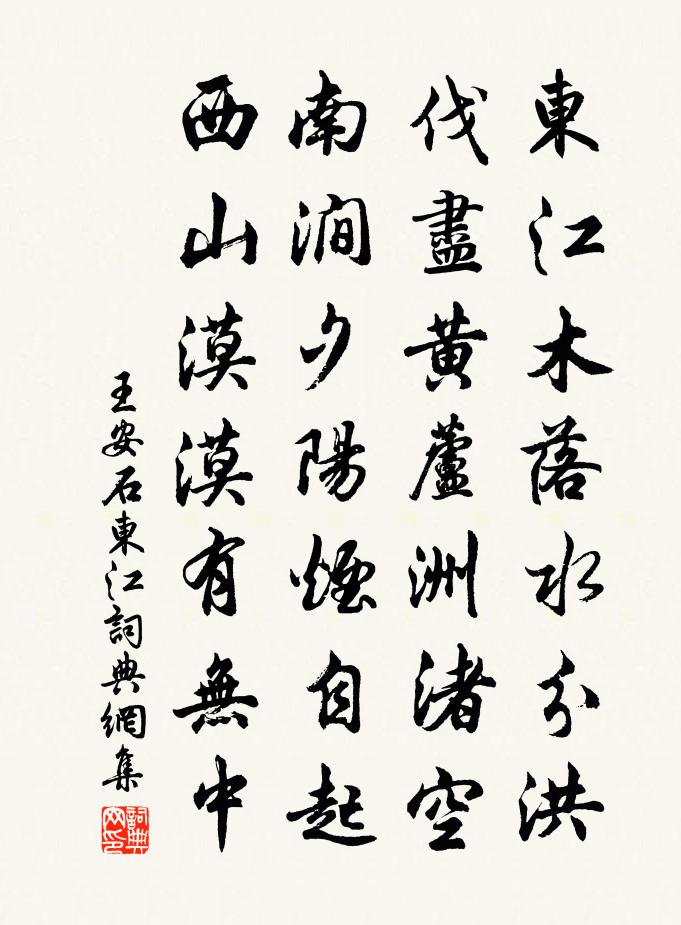 東江木落水分洪
伐盡黃蘆洲渚空
南澗夕陽煙自起
西山漠漠有無中
王安石東江詞典網集
詞典網印